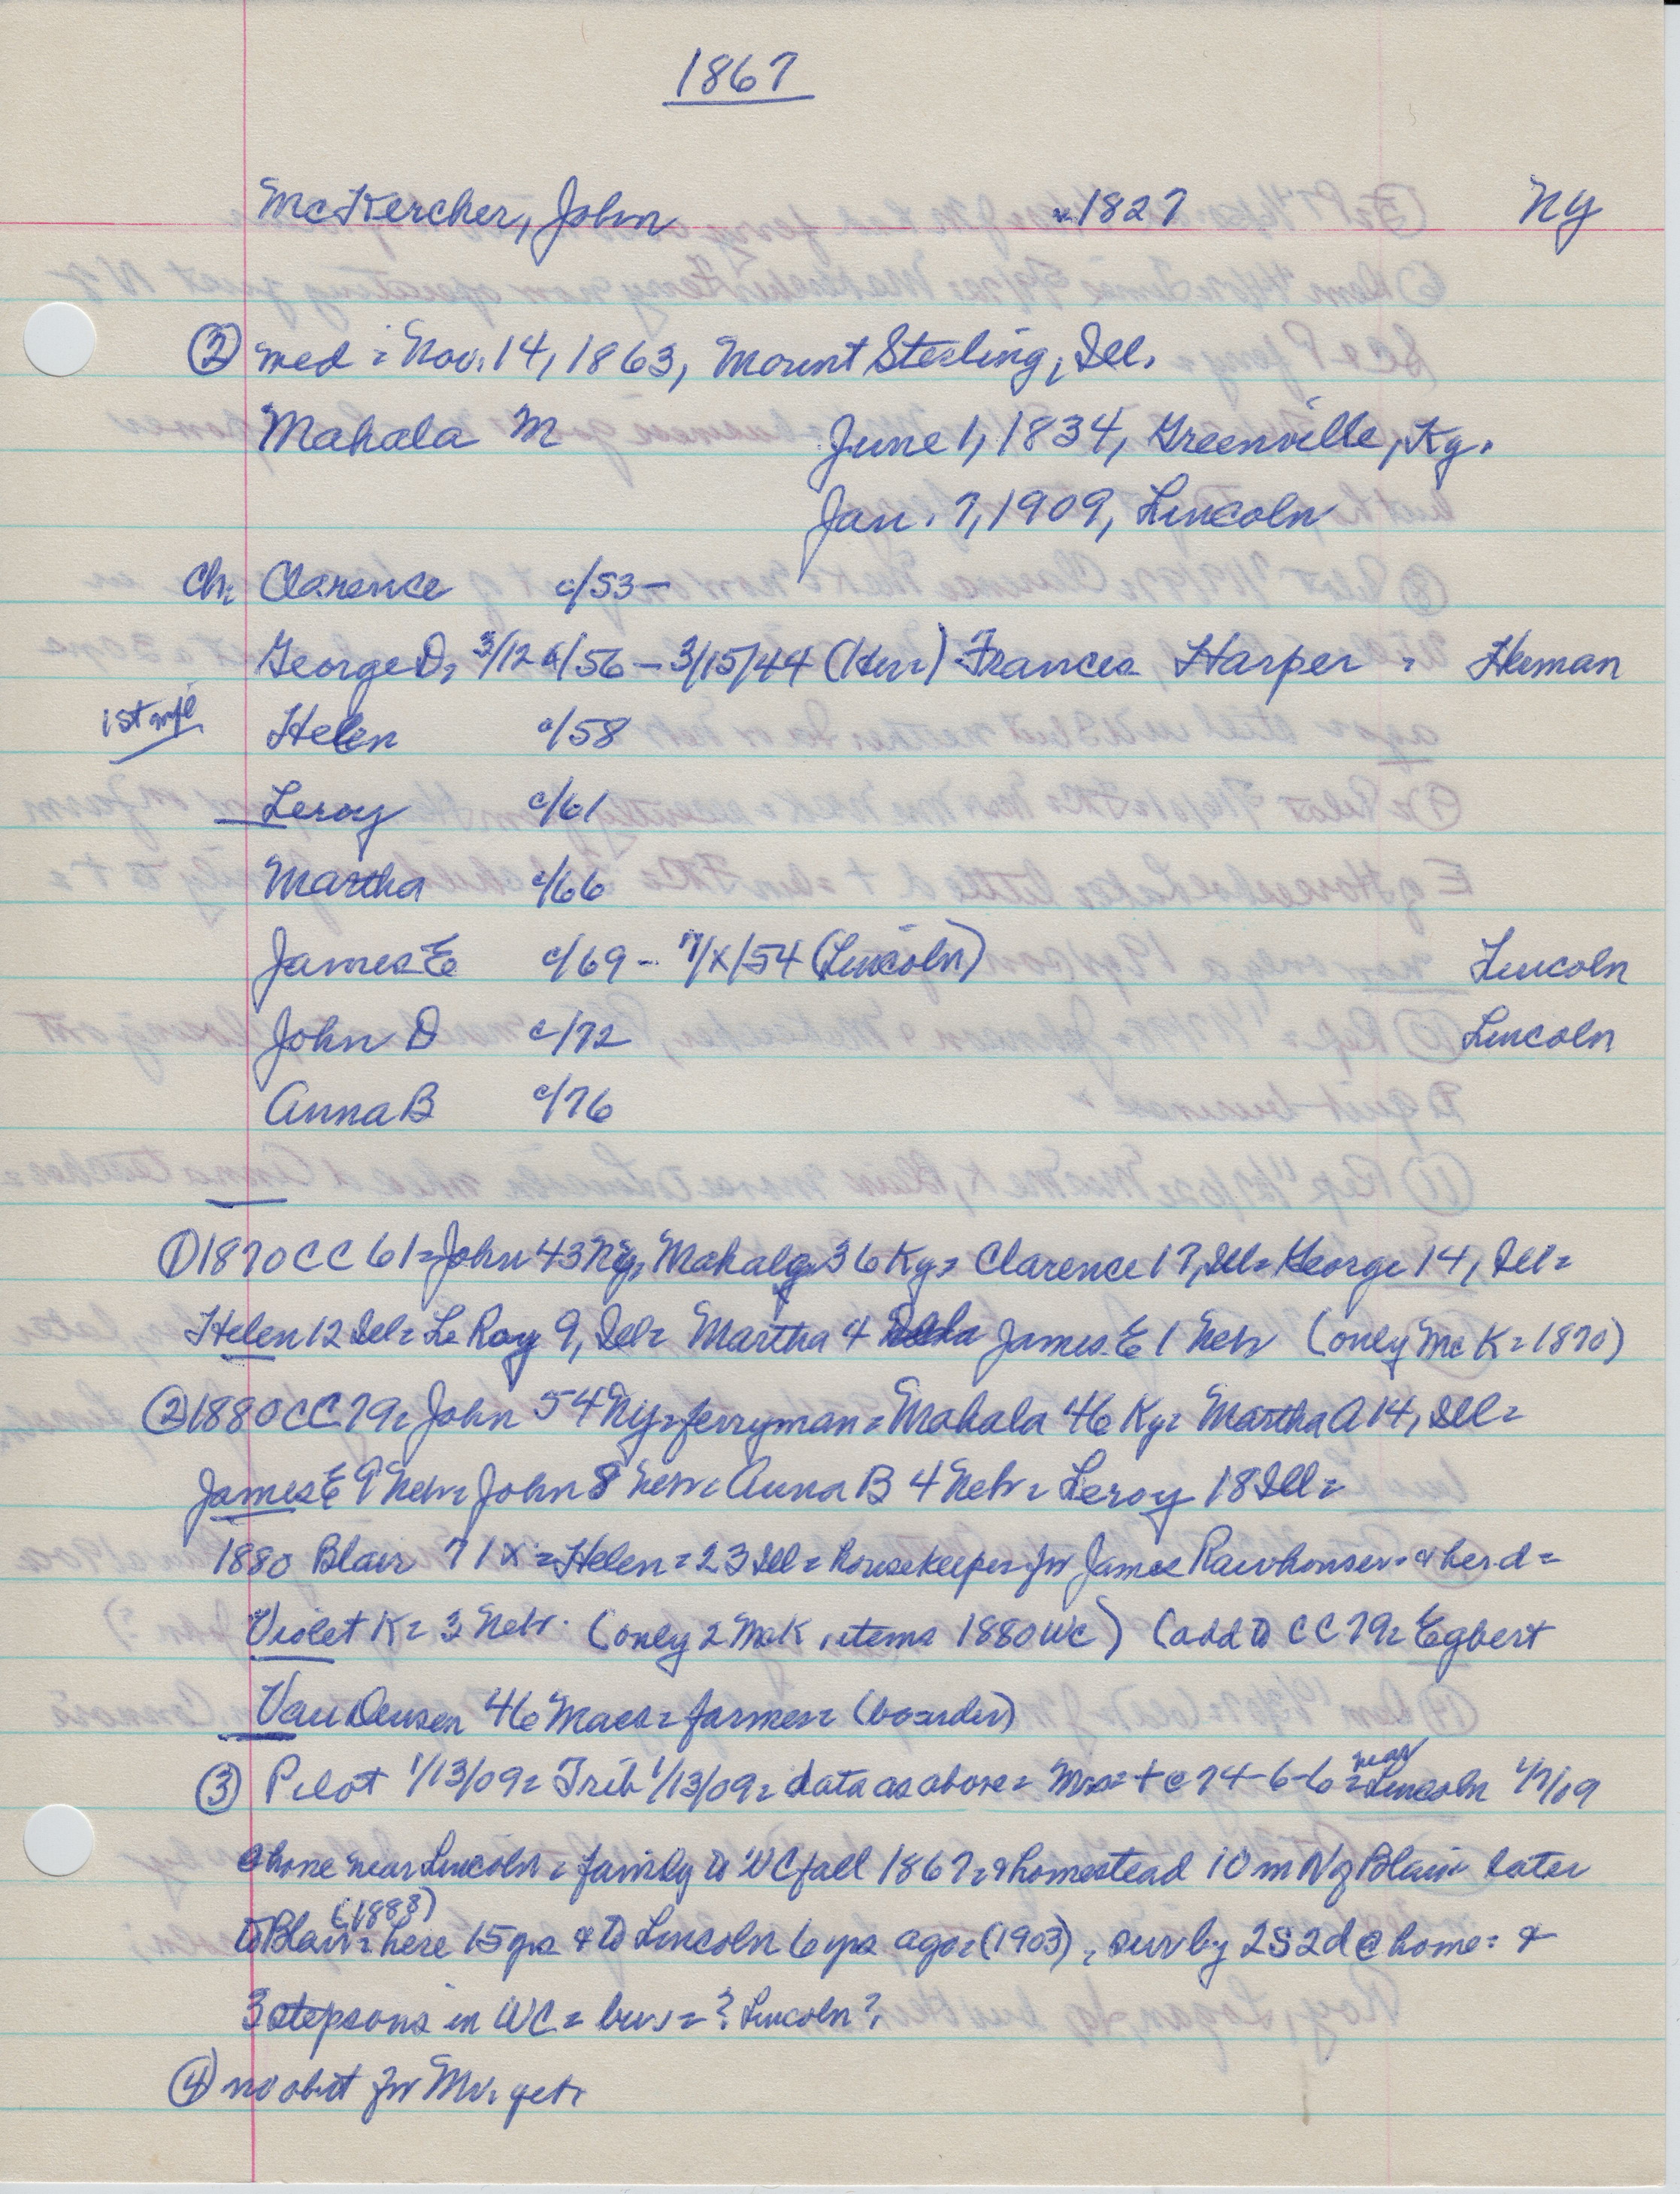 1867
McKercher, John c1827 NY
② med = Nov. 14, 1863, Mount Sterling, Ill.
Mahala M June 1, 1834, Greenville, Ky.
Jan. 7, 1909, Lincoln
Ch. Clarence c/53-
George D, 3/12 c/56 - 3/15/44 (Her) Frances Harper = Herman
1st wife Helen c/58
Leroy c/61
Martha c/66
James E c/69 - 7/x/54 (Lincoln) Lincoln
John D c/72 Lincoln
Anna B c/76
① 1870 CC 61 = John 43 NY, Mahala 36 Ky = Clarence 17, Ill = George 14, Ill =
Helen 12 Ill = LeRoy 9, Ill = Martha 4 James E 1 Neb (only McK = 1870)
② 1880 CC 79 = John 54 NY = ferryman = Mahala 46 Ky = Martha A 14, Ill =
James E 9 Neb = John 8 Neb = Anna B 4 Neb = Leroy 18 Ill =
1880 Blair 71x = Helen = 23 Ill = housekeeper for James Rawhouser = & her d =
Violet K = 3 Neb. (only 2 McK items 1880 WC) (add to CC 79 = Egbert
Van Deusen 46 Mass = farmer = (boarder)
③ Pilot 1/13/09 = Trib 1/13/09 = data as above = Mrs = + @ 74-6-6 = near Lincoln 1/7/09
@ home near Lincoln = family to WC fall 1867 = & homestead 10 m N of Blair later
to Blair (1888) = here 15 yrs & to Lincoln 6 yrs ago = (1903), surv by 2S 2d @ home = &
3 stepsons in WC = bur = ? Lincoln?
④ no obit for Mr. yet.